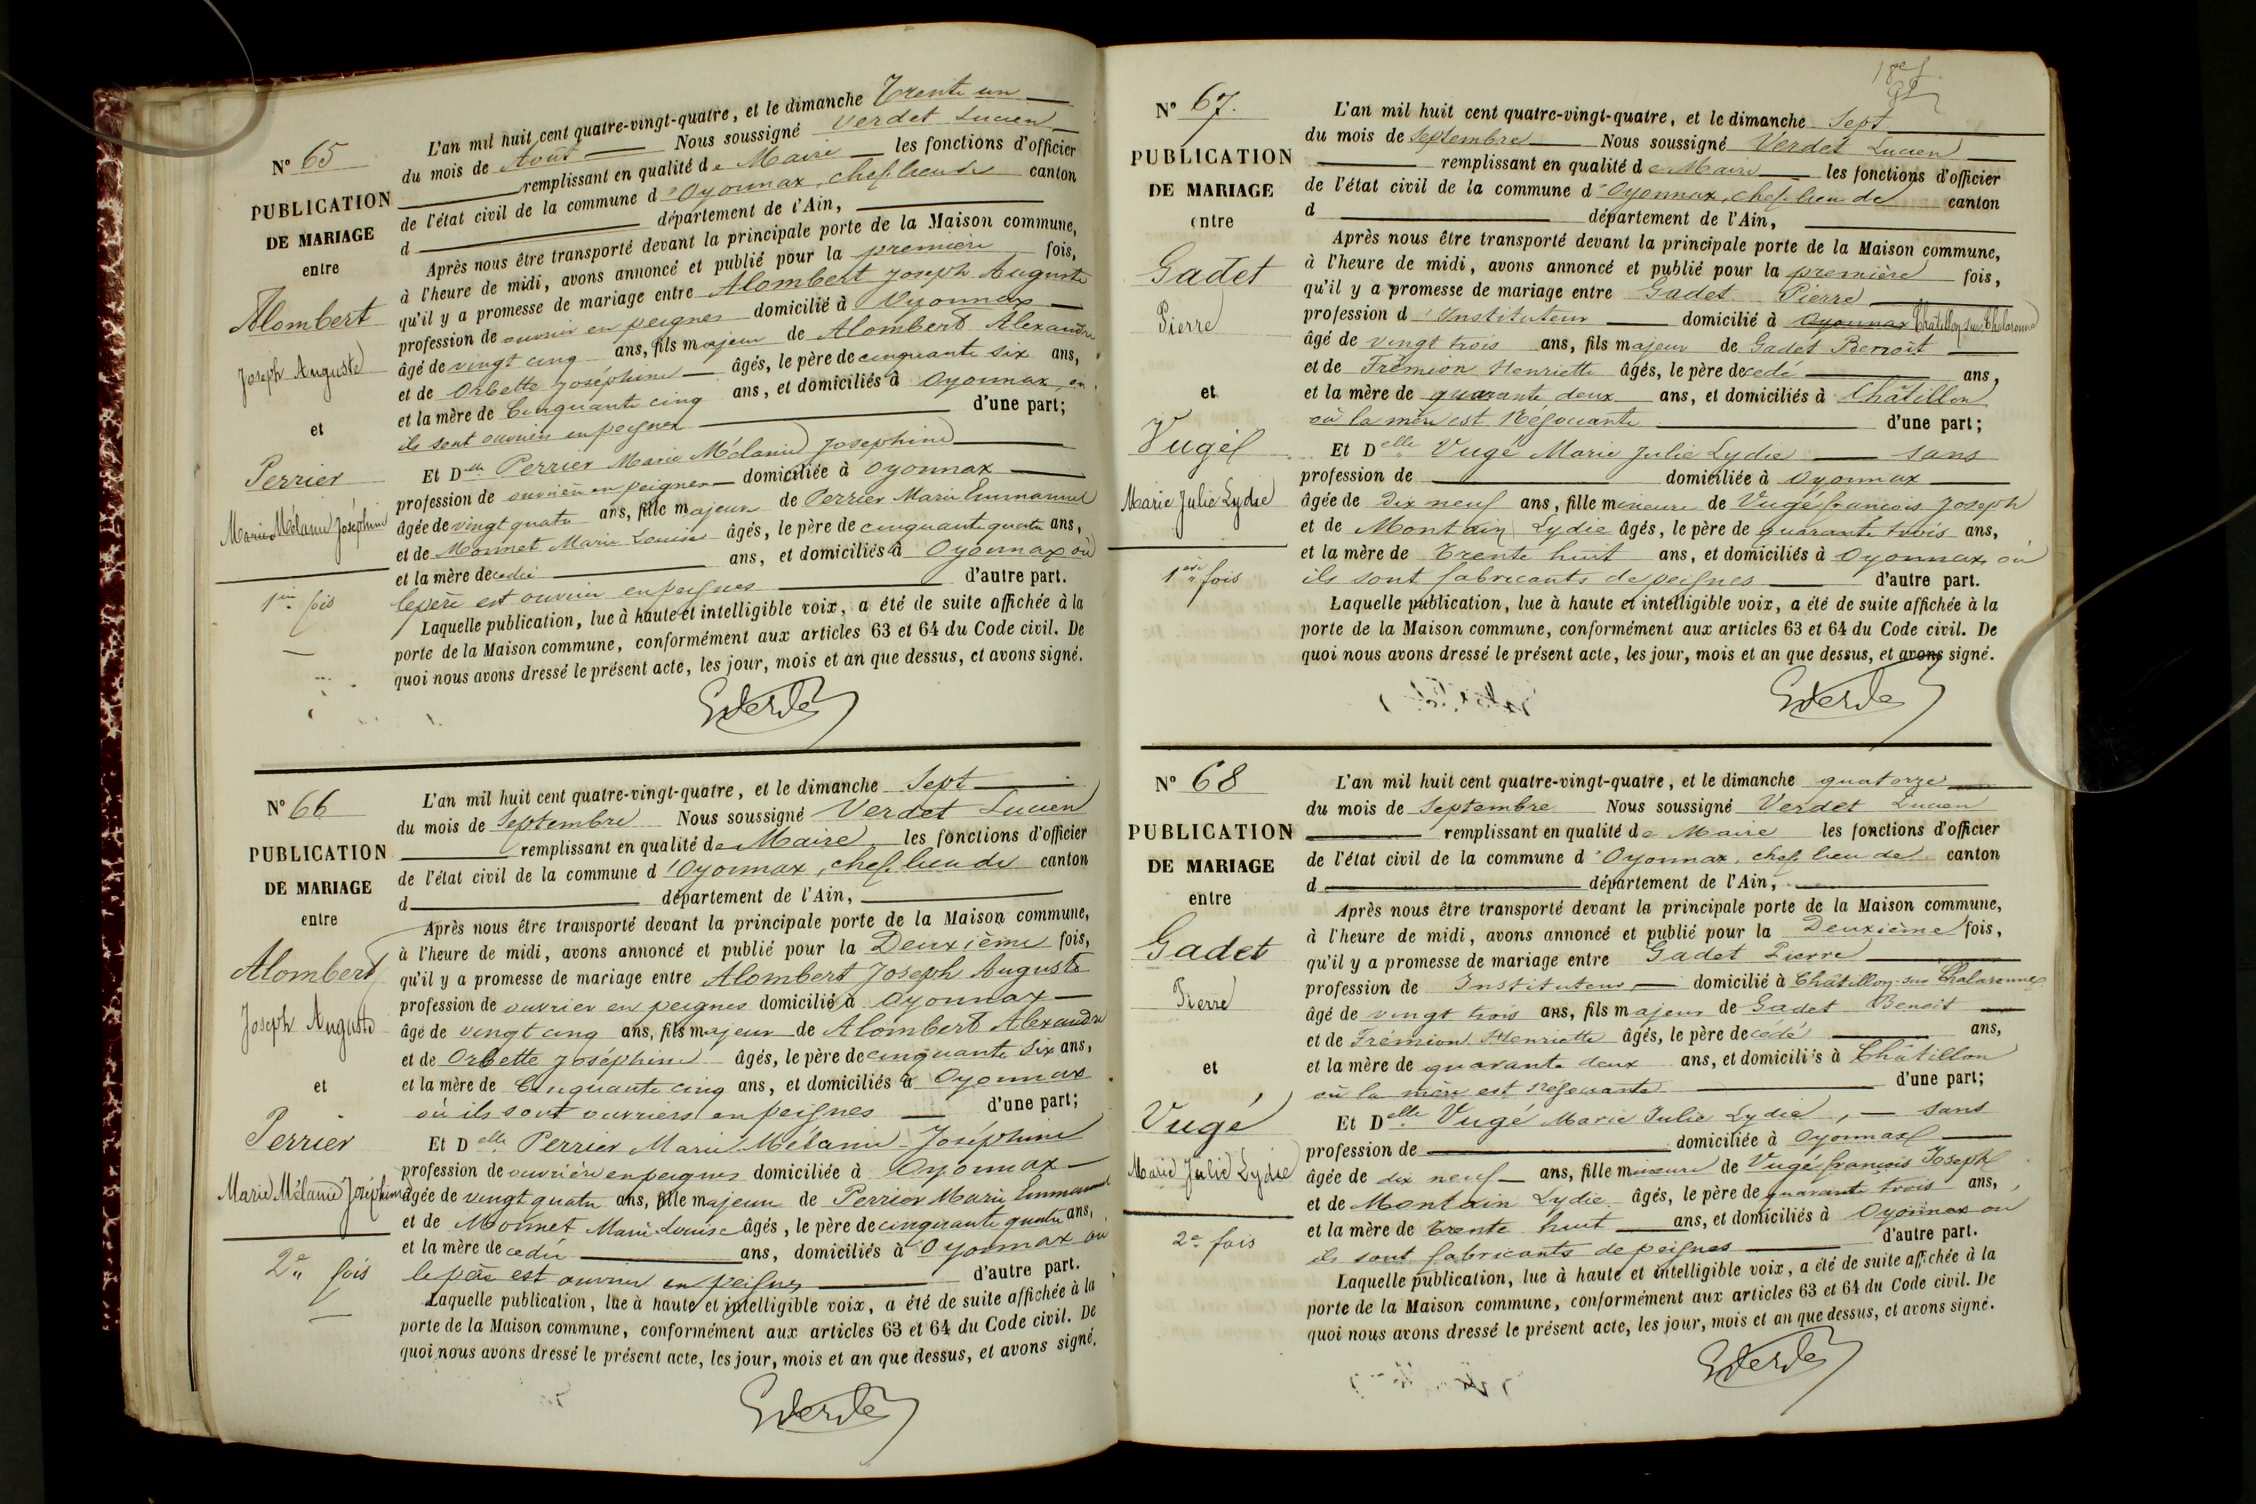 N° 65
PUBLICATION
DE MARIAGE
entre
Alombert
Joseph Auguste
et
Perrier
Marie Mélanie Joséphine
1ère fois
L'an mil huit cent quatre-vingt-quatre, et le dimanche Trente un
du mois de Août Nous soussigné Verdet Lucien
remplissant en qualité de Maire les fonctions d'officier
de l'état civil de la commune d'Oyonnax, chef lieu de canton
d département de l'Ain,
Après nous être transporté devant la principale porte de la Maison commune,
à l'heure de midi, avons annoncé et publié pour la première fois,
qu'il y a promesse de mariage entre Alombert Joseph Auguste
profession de ouvrier en peignes domicilié à Oyonnax
âgé de vingt cinq ans, fils majeur de Alombert Alexandre
et de Orbette Joséphine âgés, le père de cinquante six ans,
et la mère de Cinquante cinq ans, et domiciliés à Oyonnax, où
ils sont ouvriers en peignes d'une part;
Et Delle Perrier Marie Mélanie Joséphine
profession de ouvrière en peignes domiciliée à Oyonnax
âgée de vingt quatre ans, fille majeure de Perrier Marie Emmanuel
et de Monnet Marie Louise âgés, le père de cinquante quatre ans,
et la mère décédée ans, et domiciliés à Oyonnax où
le père est ouvrier en peignes d'autre part.
Laquelle publication, lue à haute et intelligible voix, a été de suite affichée à la
porte de la Maison commune, conformément aux articles 63 et 64 du Code civil. De
quoi nous avons dressé le présent acte, les jour, mois et an que dessus, et avons signé.
N° 66
PUBLICATION
DE MARIAGE
entre
Alombert
Joseph Auguste
et
Perrier
Marie Mélanie Joséphine
2e fois
L'an mil huit cent quatre-vingt-quatre, et le dimanche Sept
du mois de Septembre Nous soussigné Verdet Lucien
remplissant en qualité de Maire les fonctions d'officier
de l'état civil de la commune d'Oyonnax, chef lieu de canton
d département de l'Ain,
Après nous être transporté devant la principale porte de la Maison commune,
à l'heure de midi, avons annoncé et publié pour la Deuxième fois,
qu'il y a promesse de mariage entre Alombert Joseph Auguste
profession de ouvrier en peignes domicilié à Oyonnax
âgé de vingt cinq ans, fils majeur de Alombert Alexandre
et de Orbette Joséphine âgés, le père de cinquante Six ans,
et la mère de Cinquante cinq ans, et domiciliés à Oyonnax
où ils sont ouvriers en peignes d'une part;
Et Delle Perrier Marie Mélanie Joséphine
profession de ouvrière en peignes domiciliée à Oyonnax
âgée de vingt quatre ans, fille majeure de Perrier Marie Emmanuel
et de Monnet Marie Louise âgés, le père de cinquante quatre ans,
et la mère décédée ans, domiciliés à Oyonnax où
le père est ouvrier en peignes d'autre part.
Laquelle publication, lue à haute et intelligible voix, a été de suite affichée à la
porte de la Maison commune, conformément aux articles 63 et 64 du Code civil. De
quoi nous avons dressé le présent acte, les jour, mois et an que dessus, et avons signé.
18e f.
N° 67.
PUBLICATION
DE MARIAGE
entre
Gadet
Pierre
et
Vugé
Marie Julie Lydie
1ère fois
L'an mil huit cent quatre-vingt-quatre, et le dimanche Sept
du mois de Septembre Nous soussigné Verdet Lucien
remplissant en qualité de Maire les fonctions d'officier
de l'état civil de la commune d'Oyonnax, chef lieu de canton
d département de l'Ain,
Après nous être transporté devant la principale porte de la Maison commune,
à l'heure de midi, avons annoncé et publié pour la première fois,
qu'il y a promesse de mariage entre Gadet Pierre
profession d'Instituteur domicilié à Oyonnax Châtillon sur Chalaronne
âgé de vingt trois ans, fils majeur de Gadet Benoit
et de Frémion Henriette âgés, le père décédé ans,
et la mère de quarante deux ans, et domiciliés à Châtillon
où la mère est Négociante d'une part;
Et Delle Vugé Marie Julie Lydie sans
profession de domiciliée à Oyonnax
âgée de Dix neuf ans, fille mineure de Vugé françois Joseph
et de Montain Lydie âgés, le père de quarante trois ans,
et la mère de Trente huit ans, et domiciliés à Oyonnax, où
ils sont fabricants de peignes d'autre part.
Laquelle publication, lue à haute et intelligible voix, a été de suite affichée à la
porte de la Maison commune, conformément aux articles 63 et 64 du Code civil. De
quoi nous avons dressé le présent acte, les jour, mois et an que dessus, et avons signé.
N° 68
PUBLICATION
DE MARIAGE
entre
Gadet
Pierre
et
Vugé
Marie Julie Lydie
2e fois
L'an mil huit cent quatre-vingt-quatre, et le dimanche quatorze
du mois de Septembre Nous soussigné Verdet Lucien
remplissant en qualité de Maire les fonctions d'officier
de l'état civil de la commune d'Oyonnax, chef lieu de canton
d département de l'Ain,
Après nous être transporté devant la principale porte de la Maison commune,
à l'heure de midi, avons annoncé et publié pour la Deuxième fois,
qu'il y a promesse de mariage entre Gadet Pierre
profession de Instituteur domicilié à Châtillon sur Chalaronne
âgé de vingt trois ans, fils majeur de Gadet Benoit
et de Frémion Henriette âgés, le père décédé ans,
et la mère de quarante deux ans, et domiciliés à Châtillon
où la mère est Négociante d'une part;
Et Delle Vugé Marie Julie Lydie, sans
profession de domiciliée à Oyonnax
âgée de dix neuf ans, fille mineure de Vugé françois Joseph
et de Montain Lydie âgés, le père de quarante trois ans,
et la mère de Trente huit ans, et domiciliés à Oyonnax où
ils sont fabricants de peignes d'autre part.
Laquelle publication, lue à haute et intelligible voix, a été de suite affichée à la
porte de la Maison commune, conformément aux articles 63 et 64 du Code civil. De
quoi nous avons dressé le présent acte, les jour, mois et an que dessus, et avons signé.